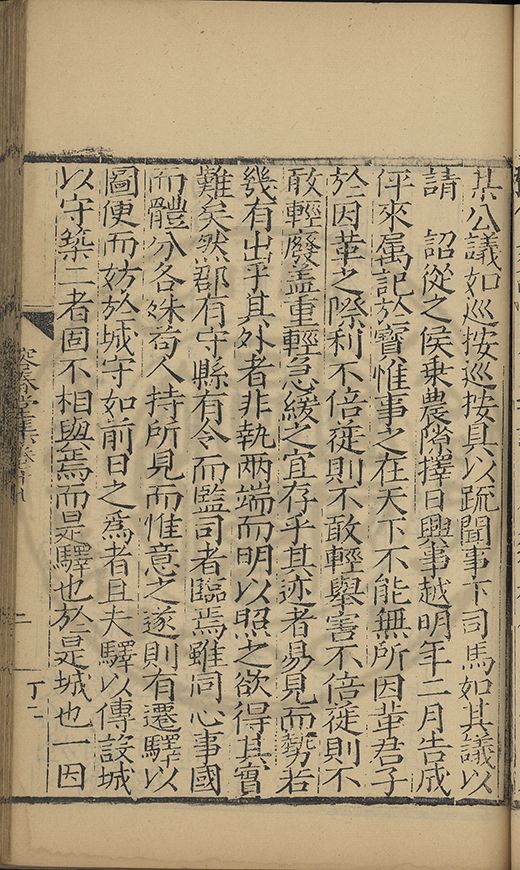 其公議如巡按巡按具以疏聞事下司馬如其議以
請 詔從之侯乗農隙擇日興事越明年二月告成
伻來属記於寳惟事之在天下不能無所因革君子
於因革之際利不倍蓰則不敢輕舉害不倍蓰則不
敢輕廢盖重輕急緩之宜存乎其迹者易見而勢若
幾有出乎其外者非執兩端而明以照之欲得其實
難矣然郡有守縣有令而監司者臨焉雖同心事國
而體分各殊苟人持所見而惟意之遂則有遷驛以
圖便而妨於城守如前日之為者且夫驛以傳設城
以守築二者固不相與焉而是驛也於是城也一因
容春堂集卷
二
丁二